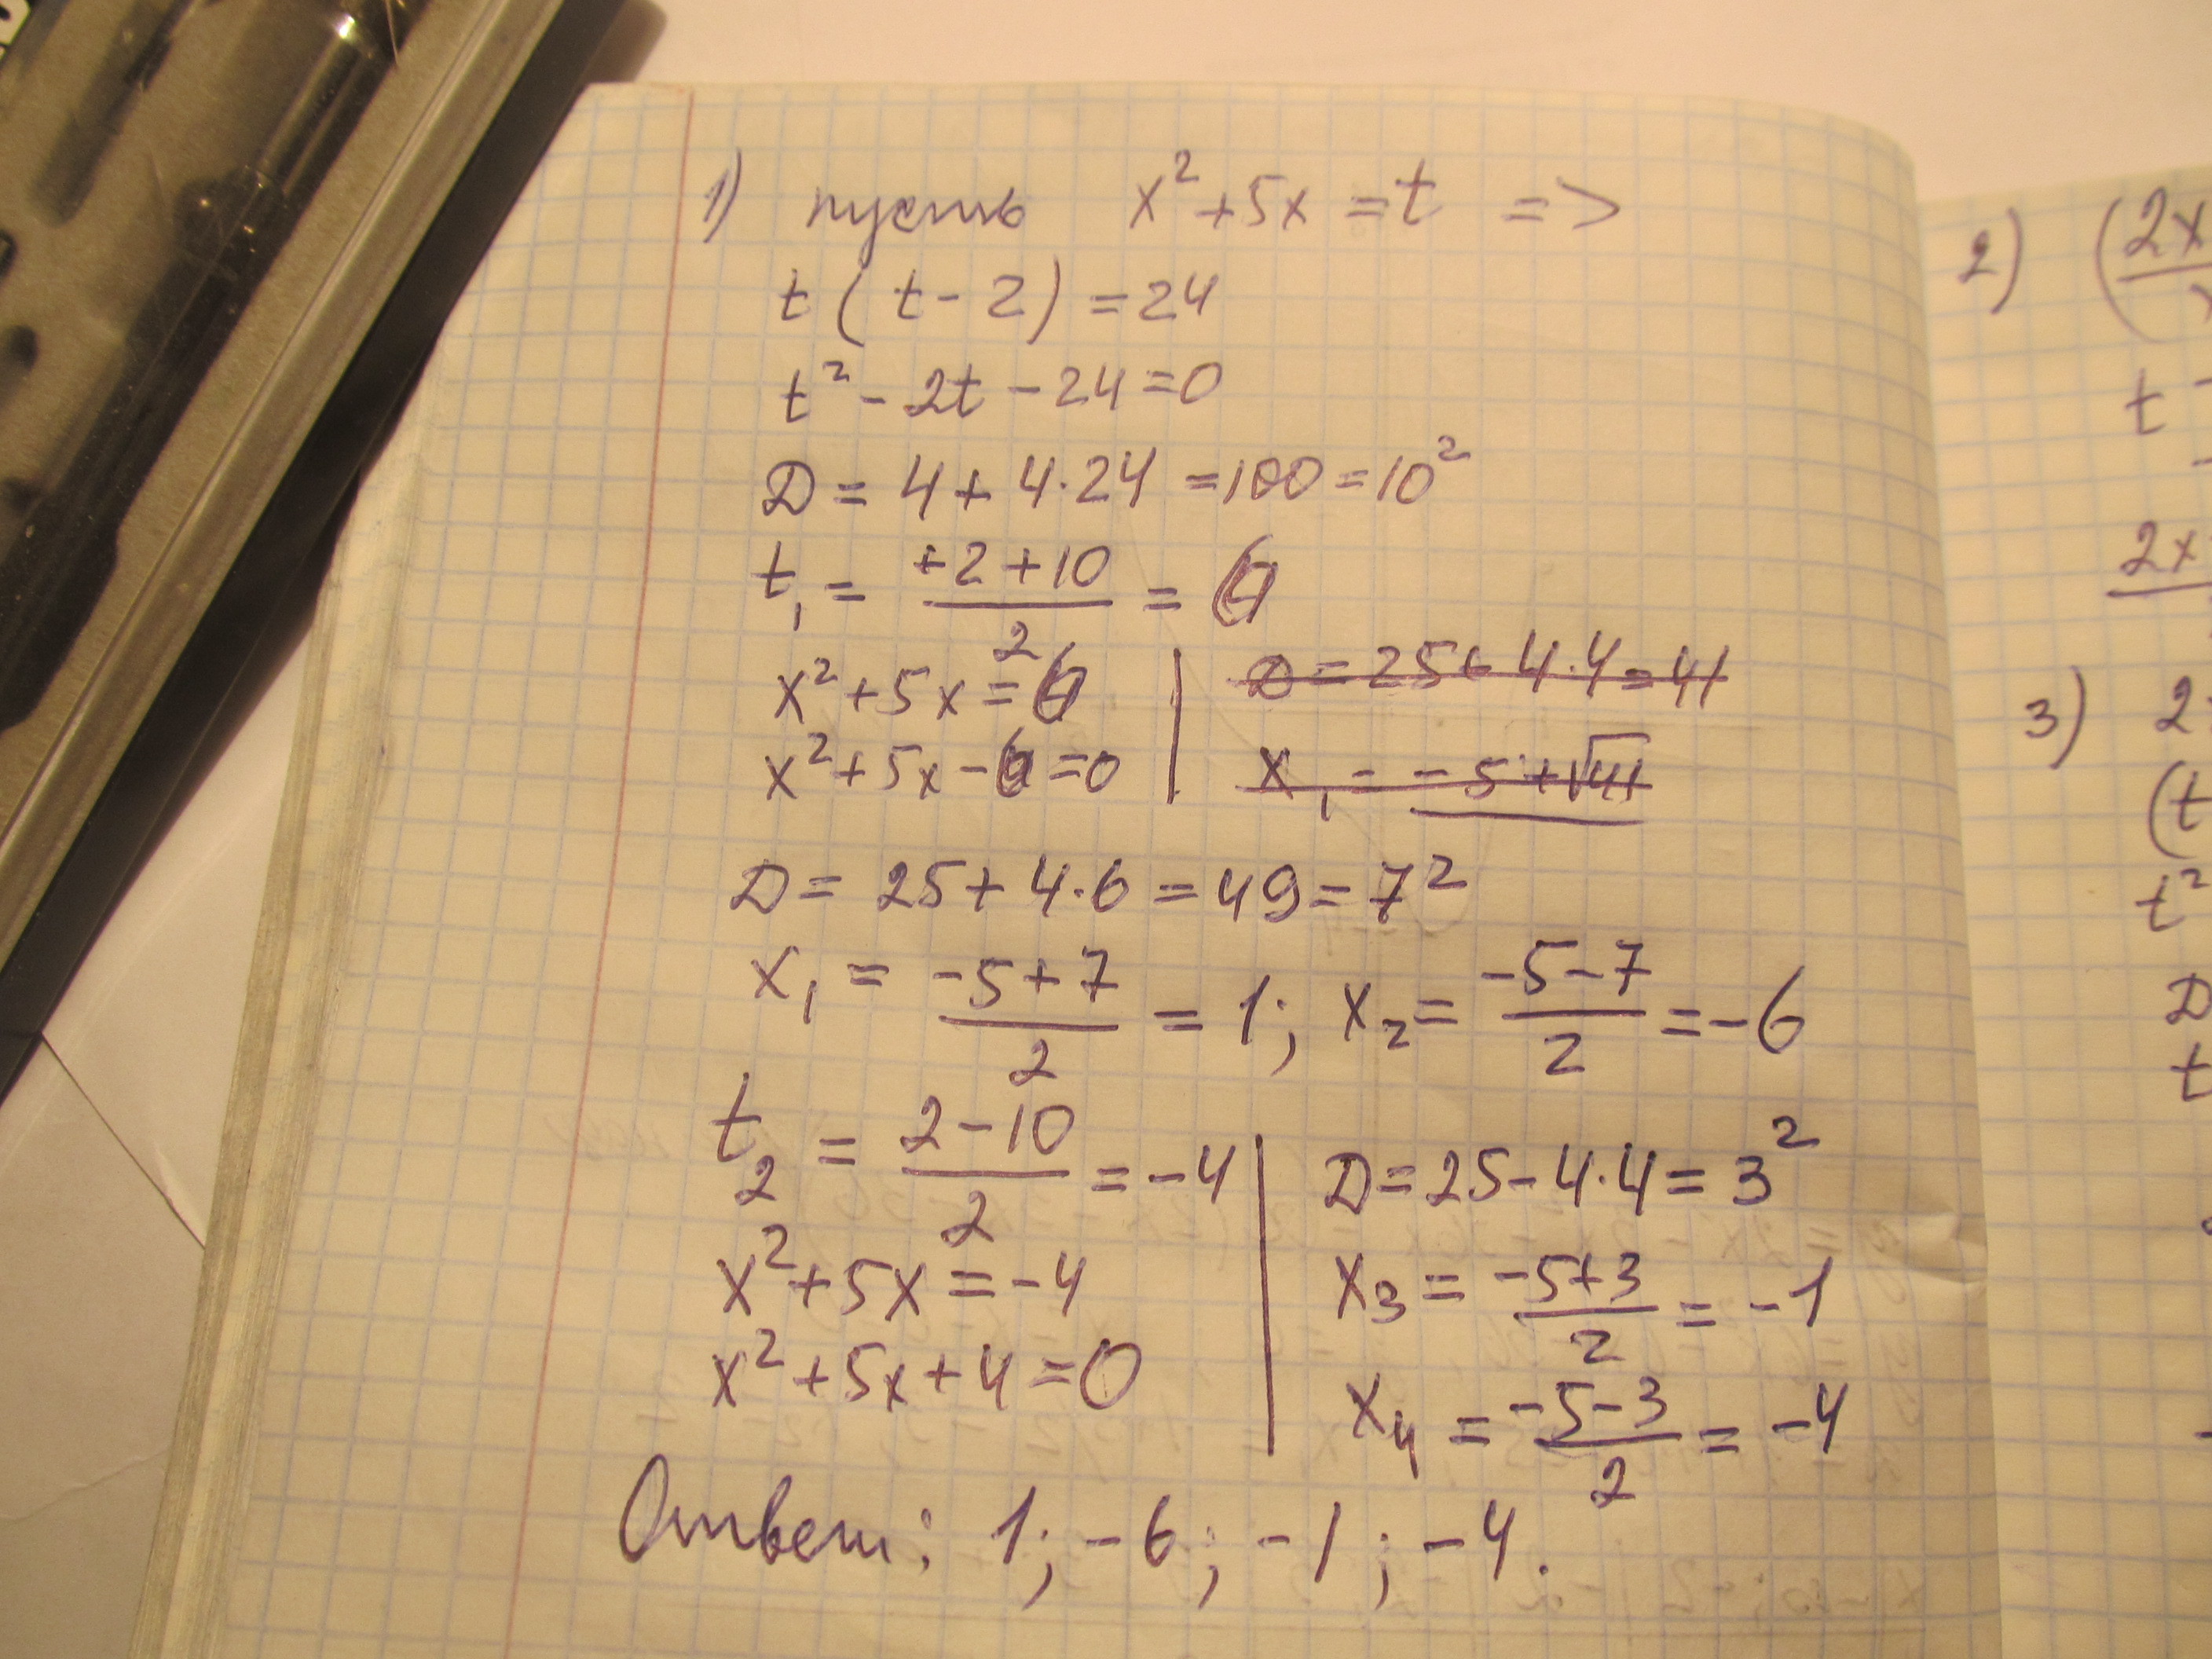 1) пусть x²+5x=t =>
t(t-2)=24
t²-2t-24=0
D=4+4·24=100=10²
t₁=(+2+10)/2=6
x²+5x=6
x²+5x-6=0
D=25+4·4=41
x₁=-5+√41
D=25+4·6=49=7²
x₁=(-5+7)/2=1; x₂=(-5-7)/2=-6
t₂=(2-10)/2=-4
x²+5x=-4
x²+5x+4=0
D=25-4·4=3²
x₃=(-5+3)/2=-1
x₄=(-5-3)/2=-4
Ответ: 1; -6; -1; -4.
2) (2x
t -
2x
3) 2
(t
t²
D
t